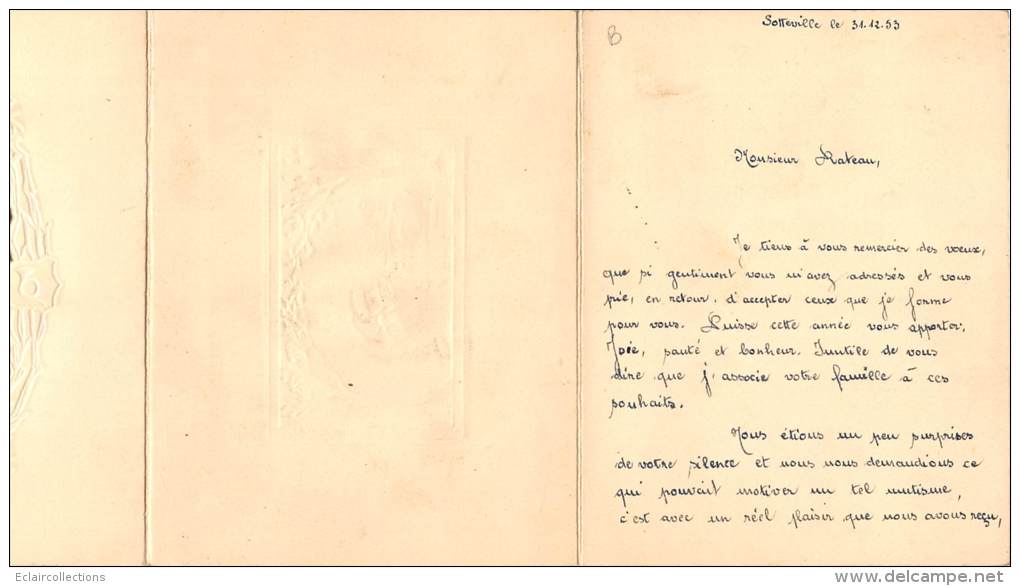 Sotteville le 31.12.53
B
Monsieur Rateau,
Je tiens à vous remercier des vœux,
que si gentiment vous m'avez adressés et vous
prie, en retour, d'accepter ceux que je forme
pour vous. Puisse cette année vous apporter,
Joie, santé et bonheur. Inutile de vous
dire que j'associe votre famille à ces
souhaits.
Nous étions un peu surprises
de votre silence et nous nous demandions ce
qui pouvait motiver un tel mutisme,
c'est avec un réel plaisir que nous avons reçu,
6
Eclaircollections
delcampe.net